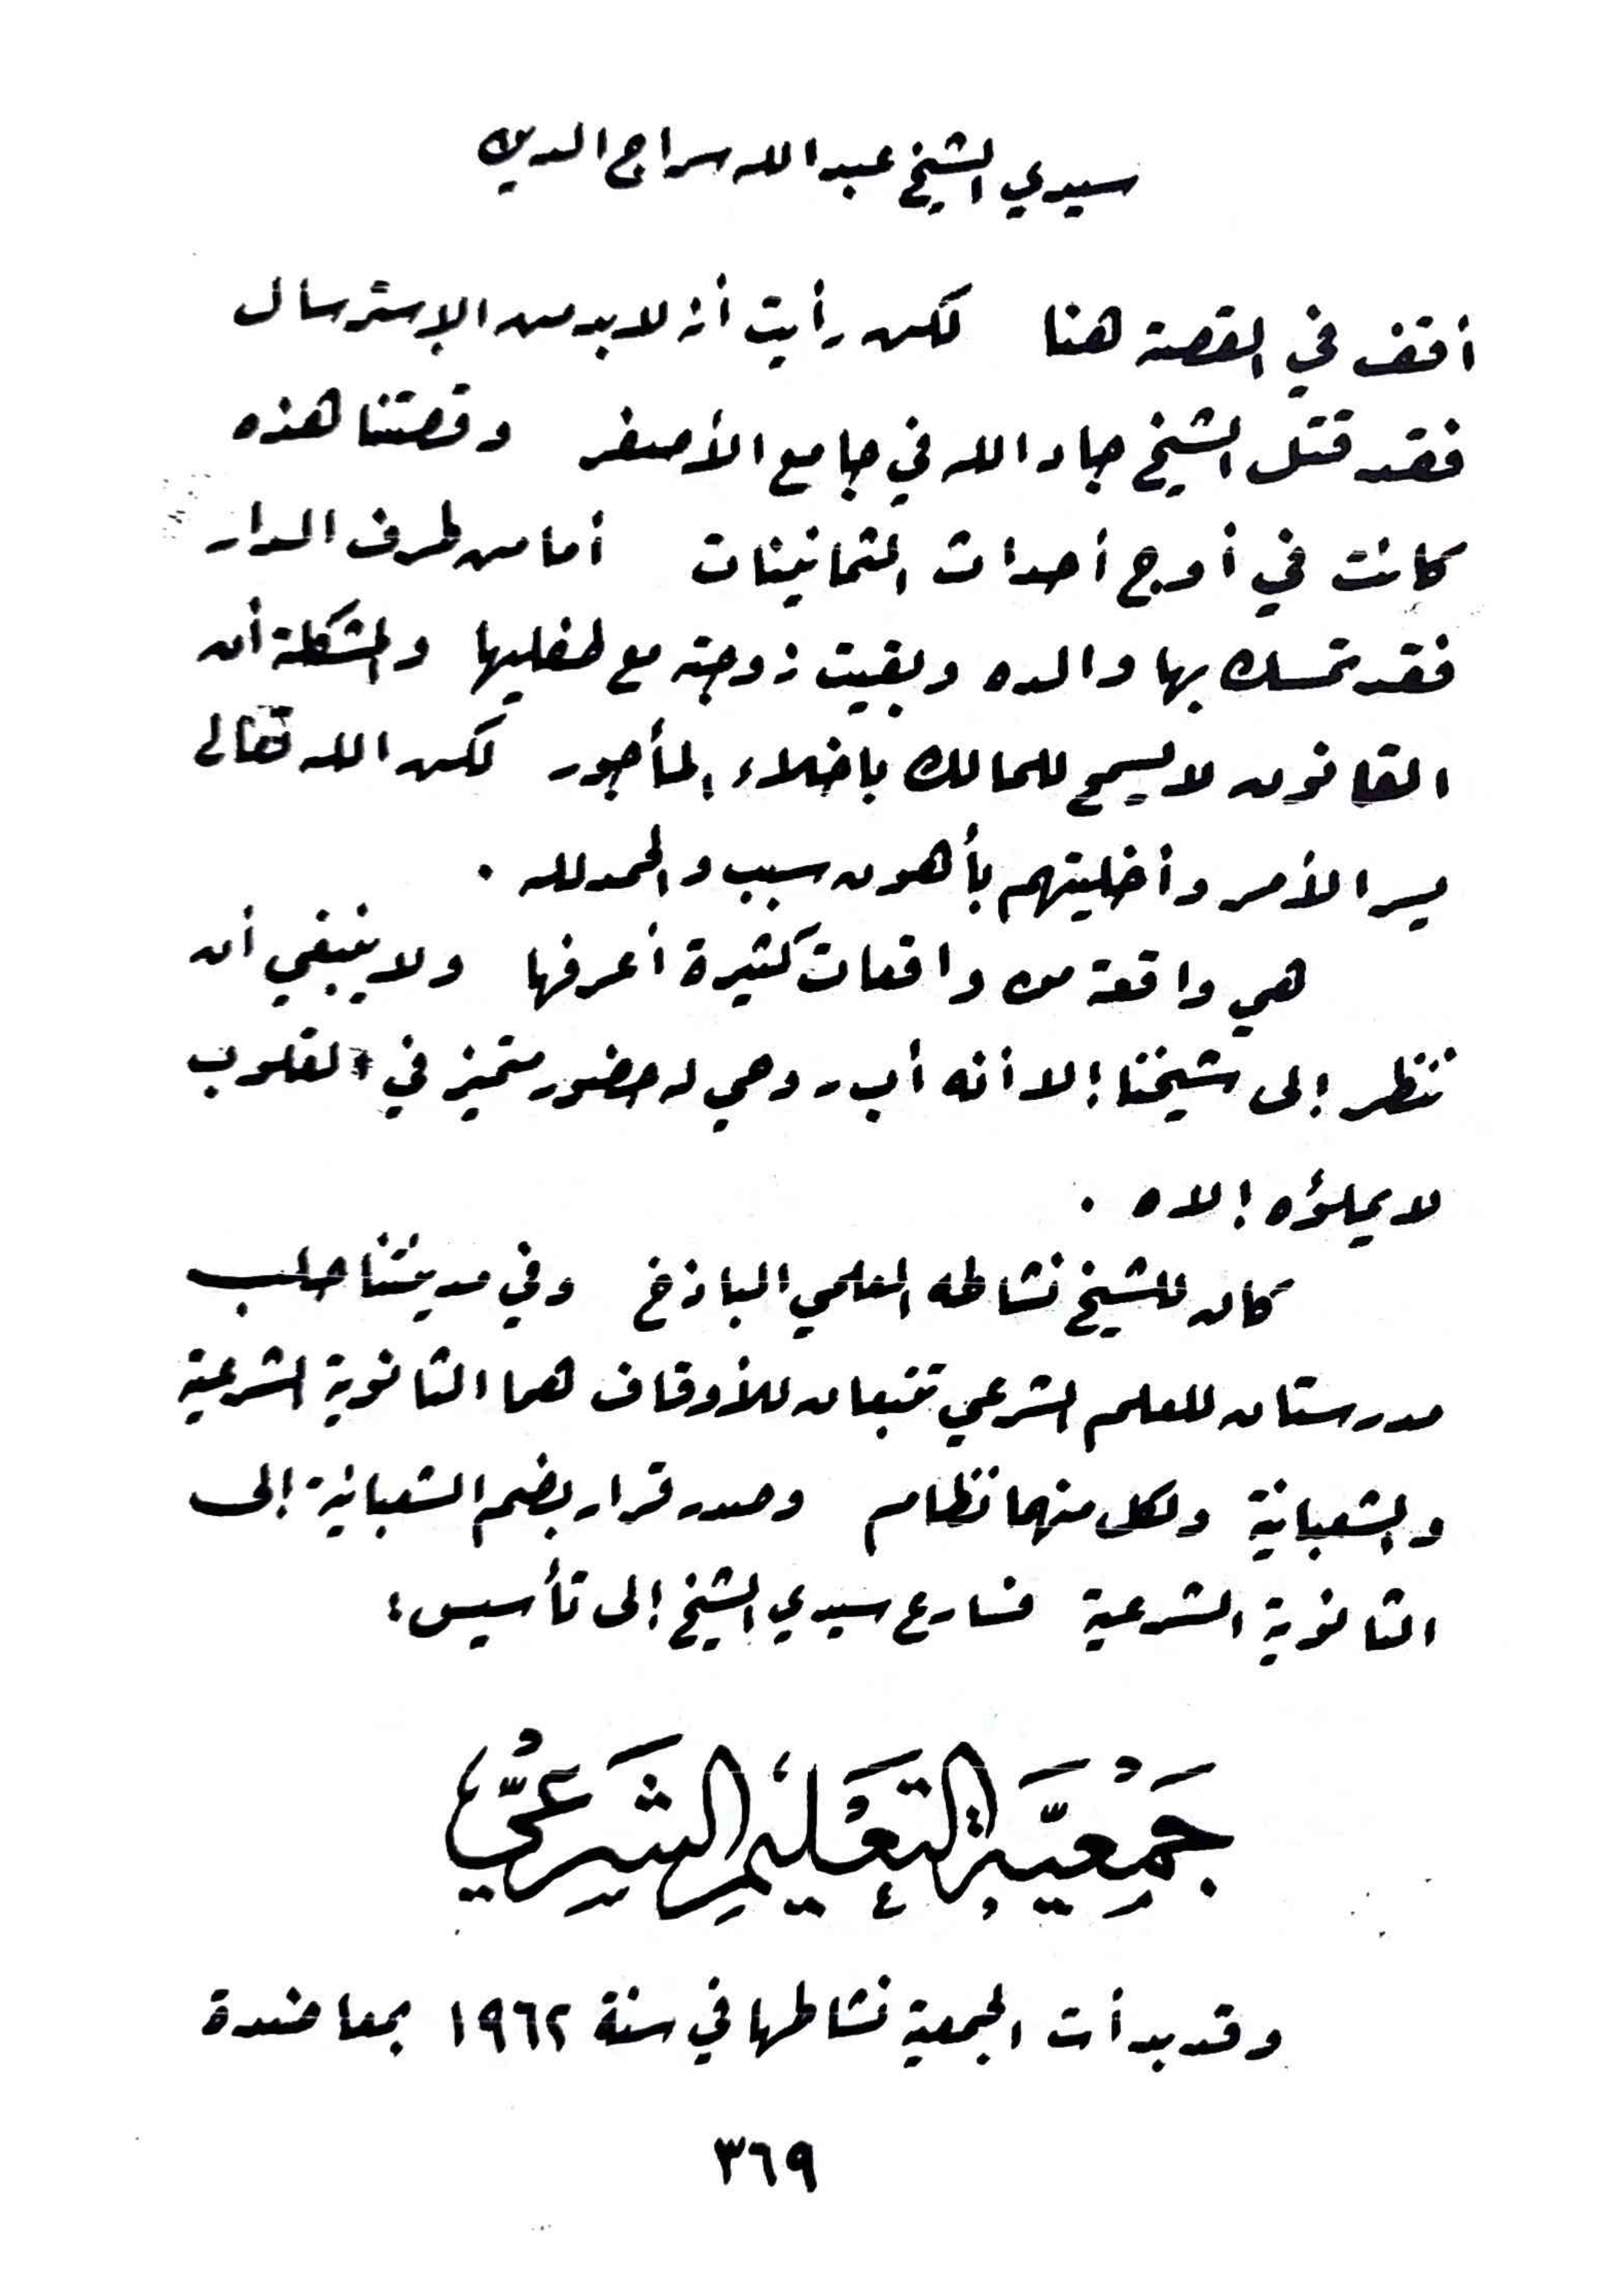 سيدي الشيخ عبد الله سراج الدين
أقف في القصة هنا لكن رأيت أنه لا بد من الإسترسال
فقد قتل الشيخ جاد الله في جامع الأصفر وقصتنا هذه
كانت في أوج أحداث الثمانينات أما من طرف الدار
فقد تمسك بها والده وبقيت زوجته مع طفليها والمشكلة أن
القانون لا يسمح للمالك بإخلاء المأجور لكن الله تعالى
يسر الأمر وأخليتهم بأهون سبب والحمد لله .
هي واقعة من واقعات كثيرة أعرفها ولا ينبغي أن
ننظر إلى شيخنا إلا أنه أب روحي له حضور متميز في القلوب
لا يملؤه إلاه .
كان للشيخ نشاطه العلمي الباذخ وفي مدينتنا حلب
مدرستان للعلم الشرعي تتبعان للأوقاف هما الثانوية الشرعية
والشعبانية ولكل منهما نظام وصدر قرار بضم الشعبانية إلى
الثانوية الشرعية فسارع سيدي الشيخ إلى تأسيس :
جَمْعِيَّةِ التَّعْلِيمِ الشَّرْعِيِّ
وقد بدأت الجمعية نشاطها في سنة ١٩٦٢ بمعاضدة
٣٦٩